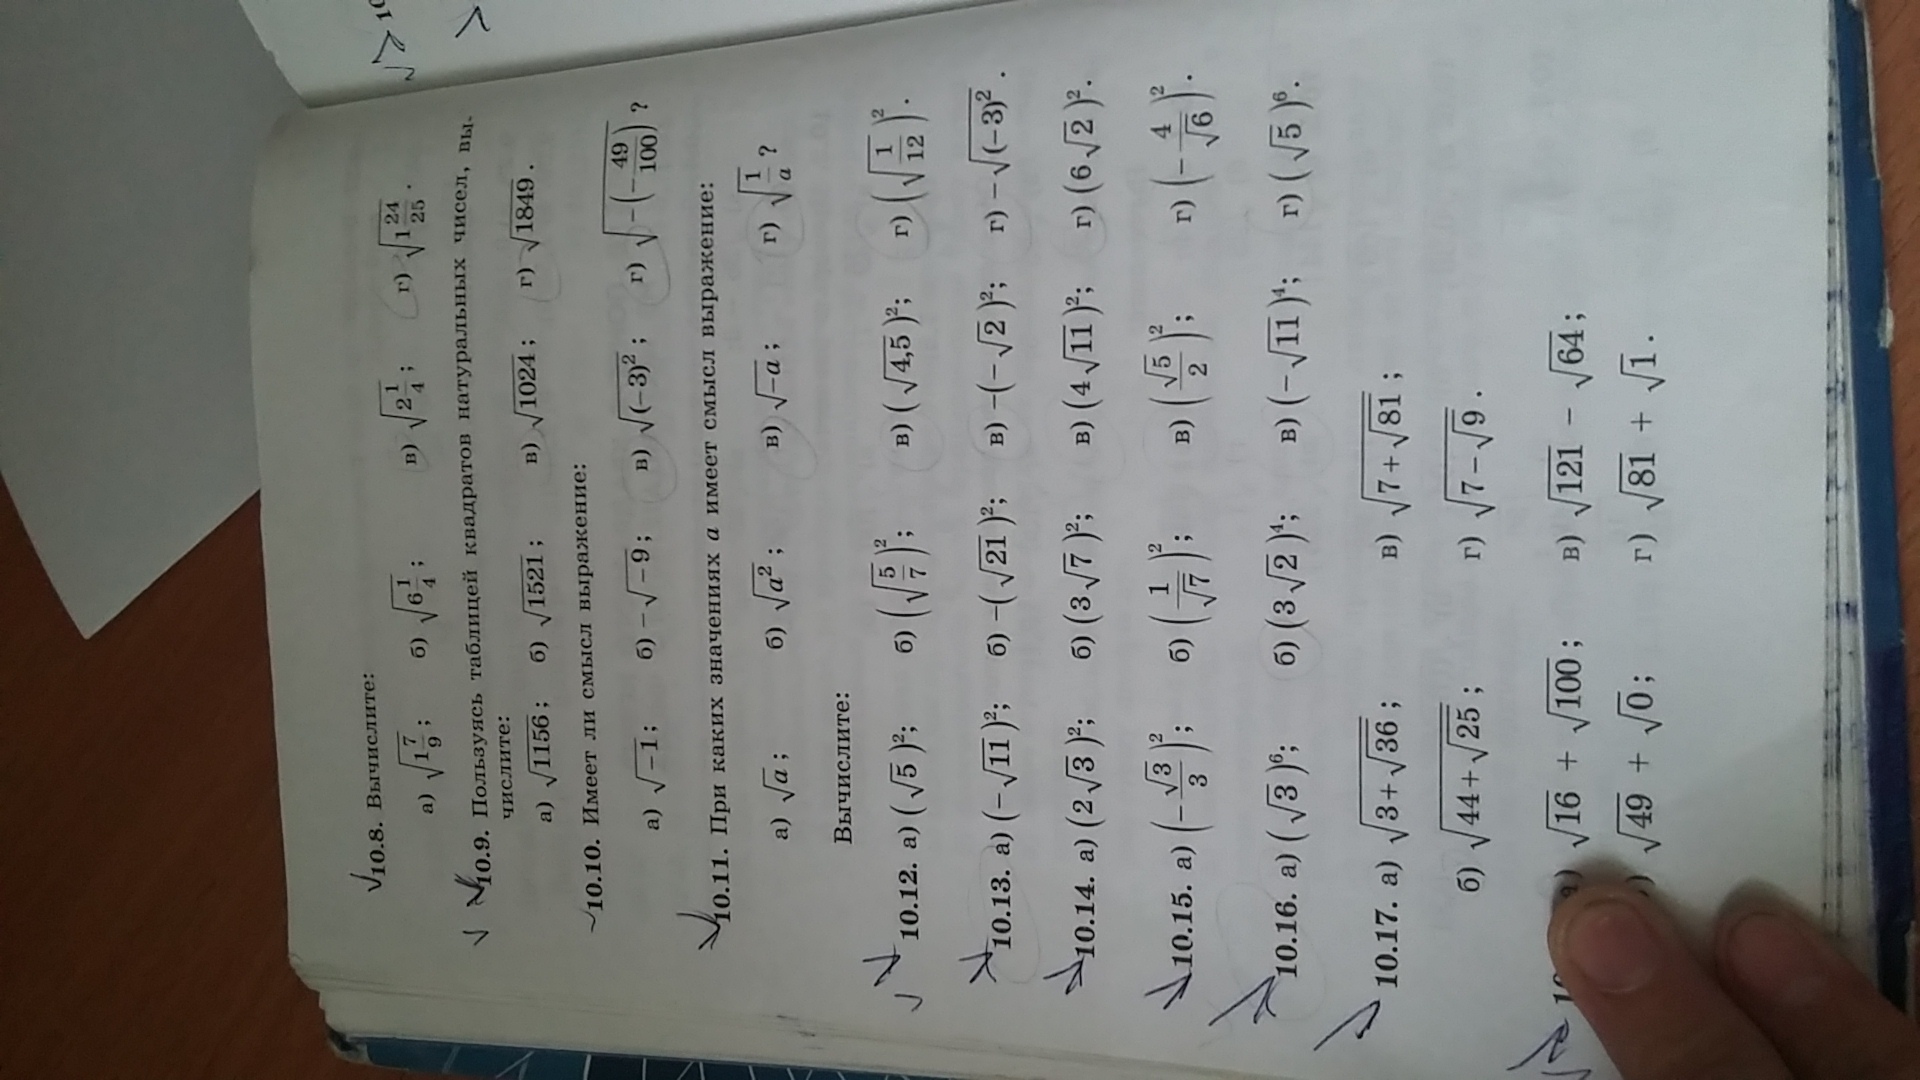 10.8. Вычислите:
а) √(1 7/9); б) √(6 1/4); в) √(2 1/4); г) √(1 24/25).
10.9. Пользуясь таблицей квадратов натуральных чисел, вы-
числите:
а) √1156; б) √1521; в) √1024; г) √1849.
10.10. Имеет ли смысл выражение:
а) √−1; б) −√−9; в) √(−3)²; г) √(−(−49/100))?
10.11. При каких значениях a имеет смысл выражение:
а) √a; б) √a²; в) √−a; г) √(1/a)?
Вычислите:
10.12. а) (√5)²; б) (√(5/7))²; в) (√4,5)²; г) (√(1/12))².
10.13. а) (−√11)²; б) −(√21)²; в) −(−√2)²; г) −√(−3)².
10.14. а) (2√3)²; б) (3√7)²; в) (4√11)²; г) (6√2)².
10.15. а) (−√3/3)²; б) (1/√7)²; в) (√5/2)²; г) (−4/√6)².
10.16. а) (√3)⁶; б) (3√2)⁴; в) (−√11)⁴; г) (√5)⁶.
10.17. а) √(3+√36); в) √(7+√81);
б) √(44+√25); г) √(7−√9).
√16 + √100; в) √121 − √64;
√49 + √0; г) √81 + √1.